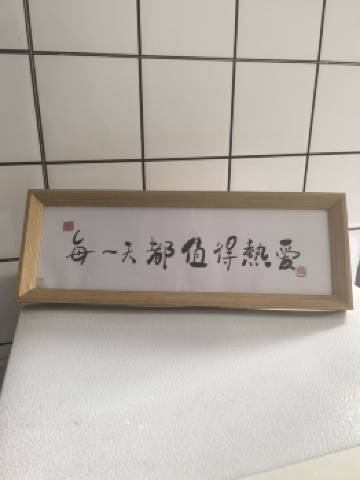 每一天都值得熱愛